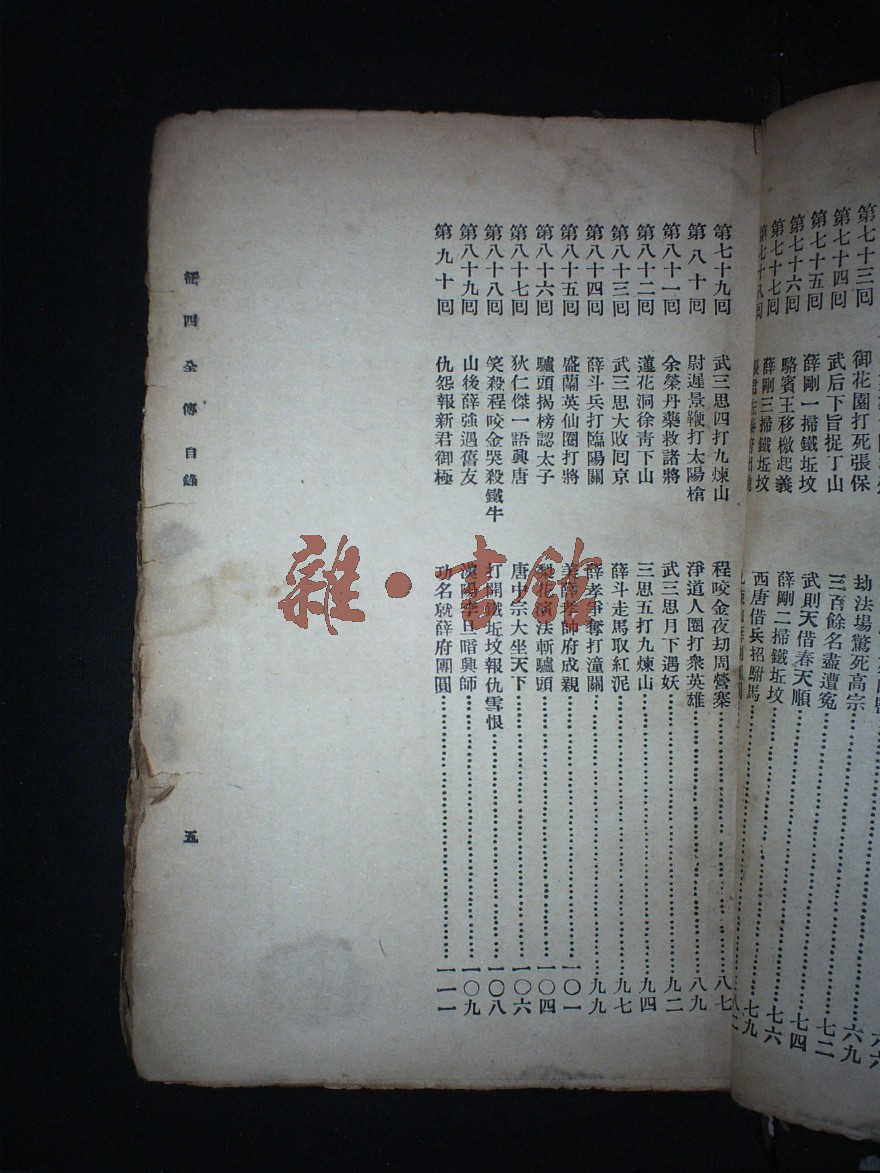 第七十三回 御花園打死張保 劫法場驚死高宗 六九
第七十四回 武后下旨捉丁山 三百餘名盡遭冤 七二
第七十五回 薛剛一掃鐵坵坟 武則天借春天順 七四
第七十六回 駱賓王移檄起義 薛剛二掃鐵坵坟 七六
第七十七回 薛剛三掃鐵坵坟 西唐借兵招駙馬 七九
第七十八回 八二
第七十九回 武三思四打九煉山 程咬金夜劫周營寨 八七
第八十回 尉遲景鞭打太陽槍 淨道人圈打衆英雄 八九
第八十一回 余榮丹藥救諸將 武三思月下遇妖 九二
第八十二回 蓮花洞徐青下山 三思五打九煉山 九四
第八十三回 武三思大敗囘京 薛斗走馬取紅泥 九七
第八十四回 薛斗兵打臨陽關 薛孝爭奪打潼關 九九
第八十五回 盛蘭英仙圈打將 姜薛孝師府成親 一〇一
第八十六回 驢頭揭榜認太子 梨花演法斬驢頭 一〇四
第八十七回 狄仁傑一語興唐 唐中宗大坐天下 一〇六
第八十八回 笑殺程咬金哭殺鐵牛 打開鐵坵坟報仇雪恨 一〇八
第八十九回 山後薛強遇舊友 漢陽李旦暗興師 一〇九
第九十回 仇怨報新君御極 功名就薛府團圓 一一一
征四全傳 目錄
五
雜·書館